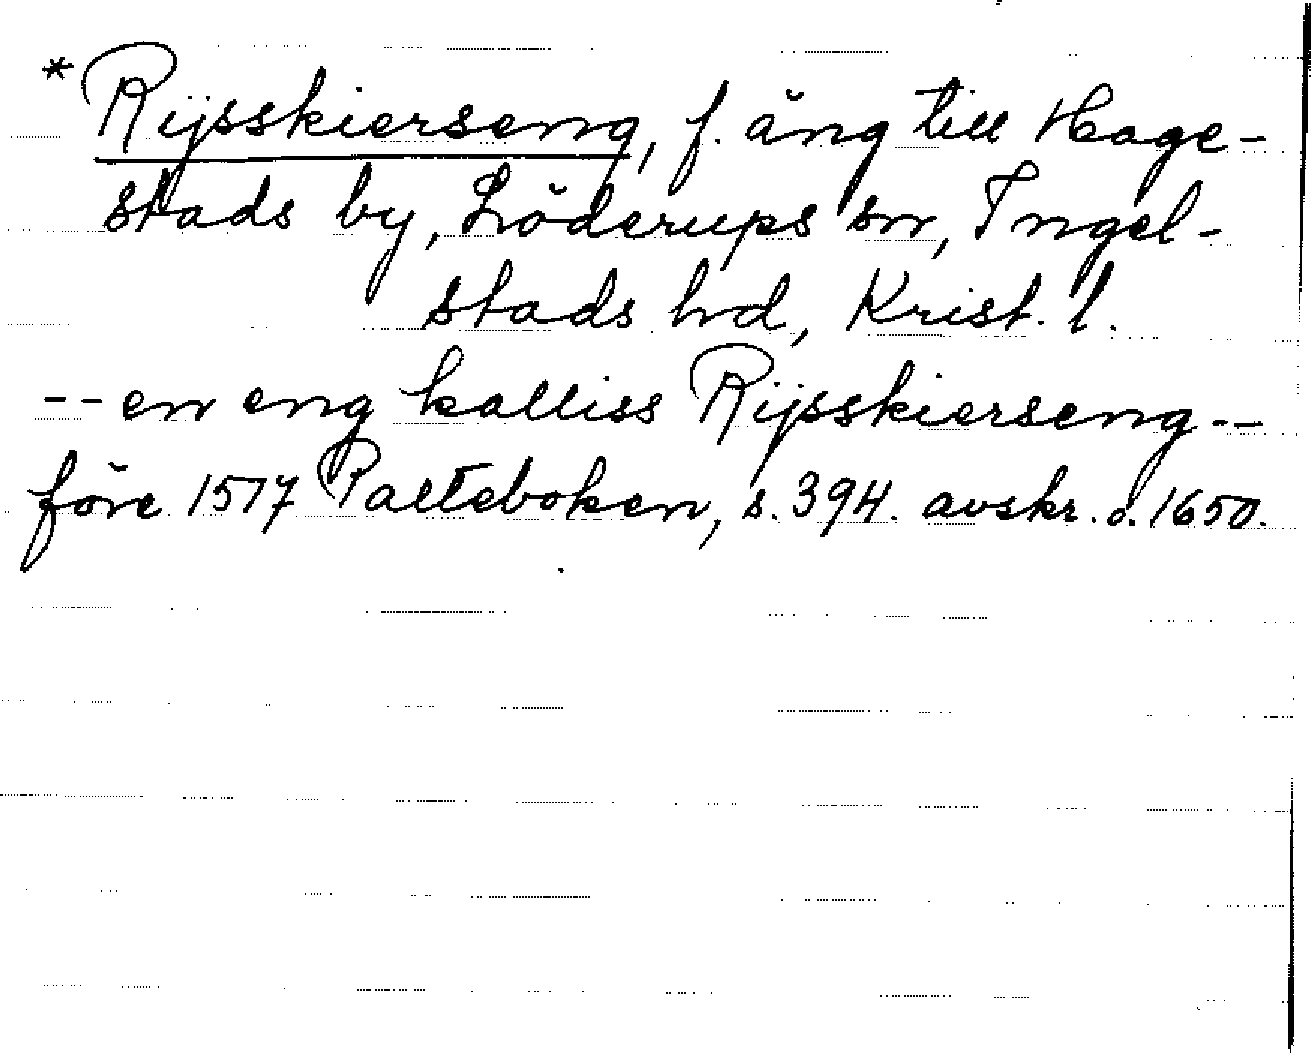 * Rijsskierseng, f. äng till Hage-
stads by, Löderups sn, Ingel-
stads hd, Krist. l.
-- en eng kalliss Rijsskierseng --
före 1517 Palteboken, s. 394. avskr. o. 1650.